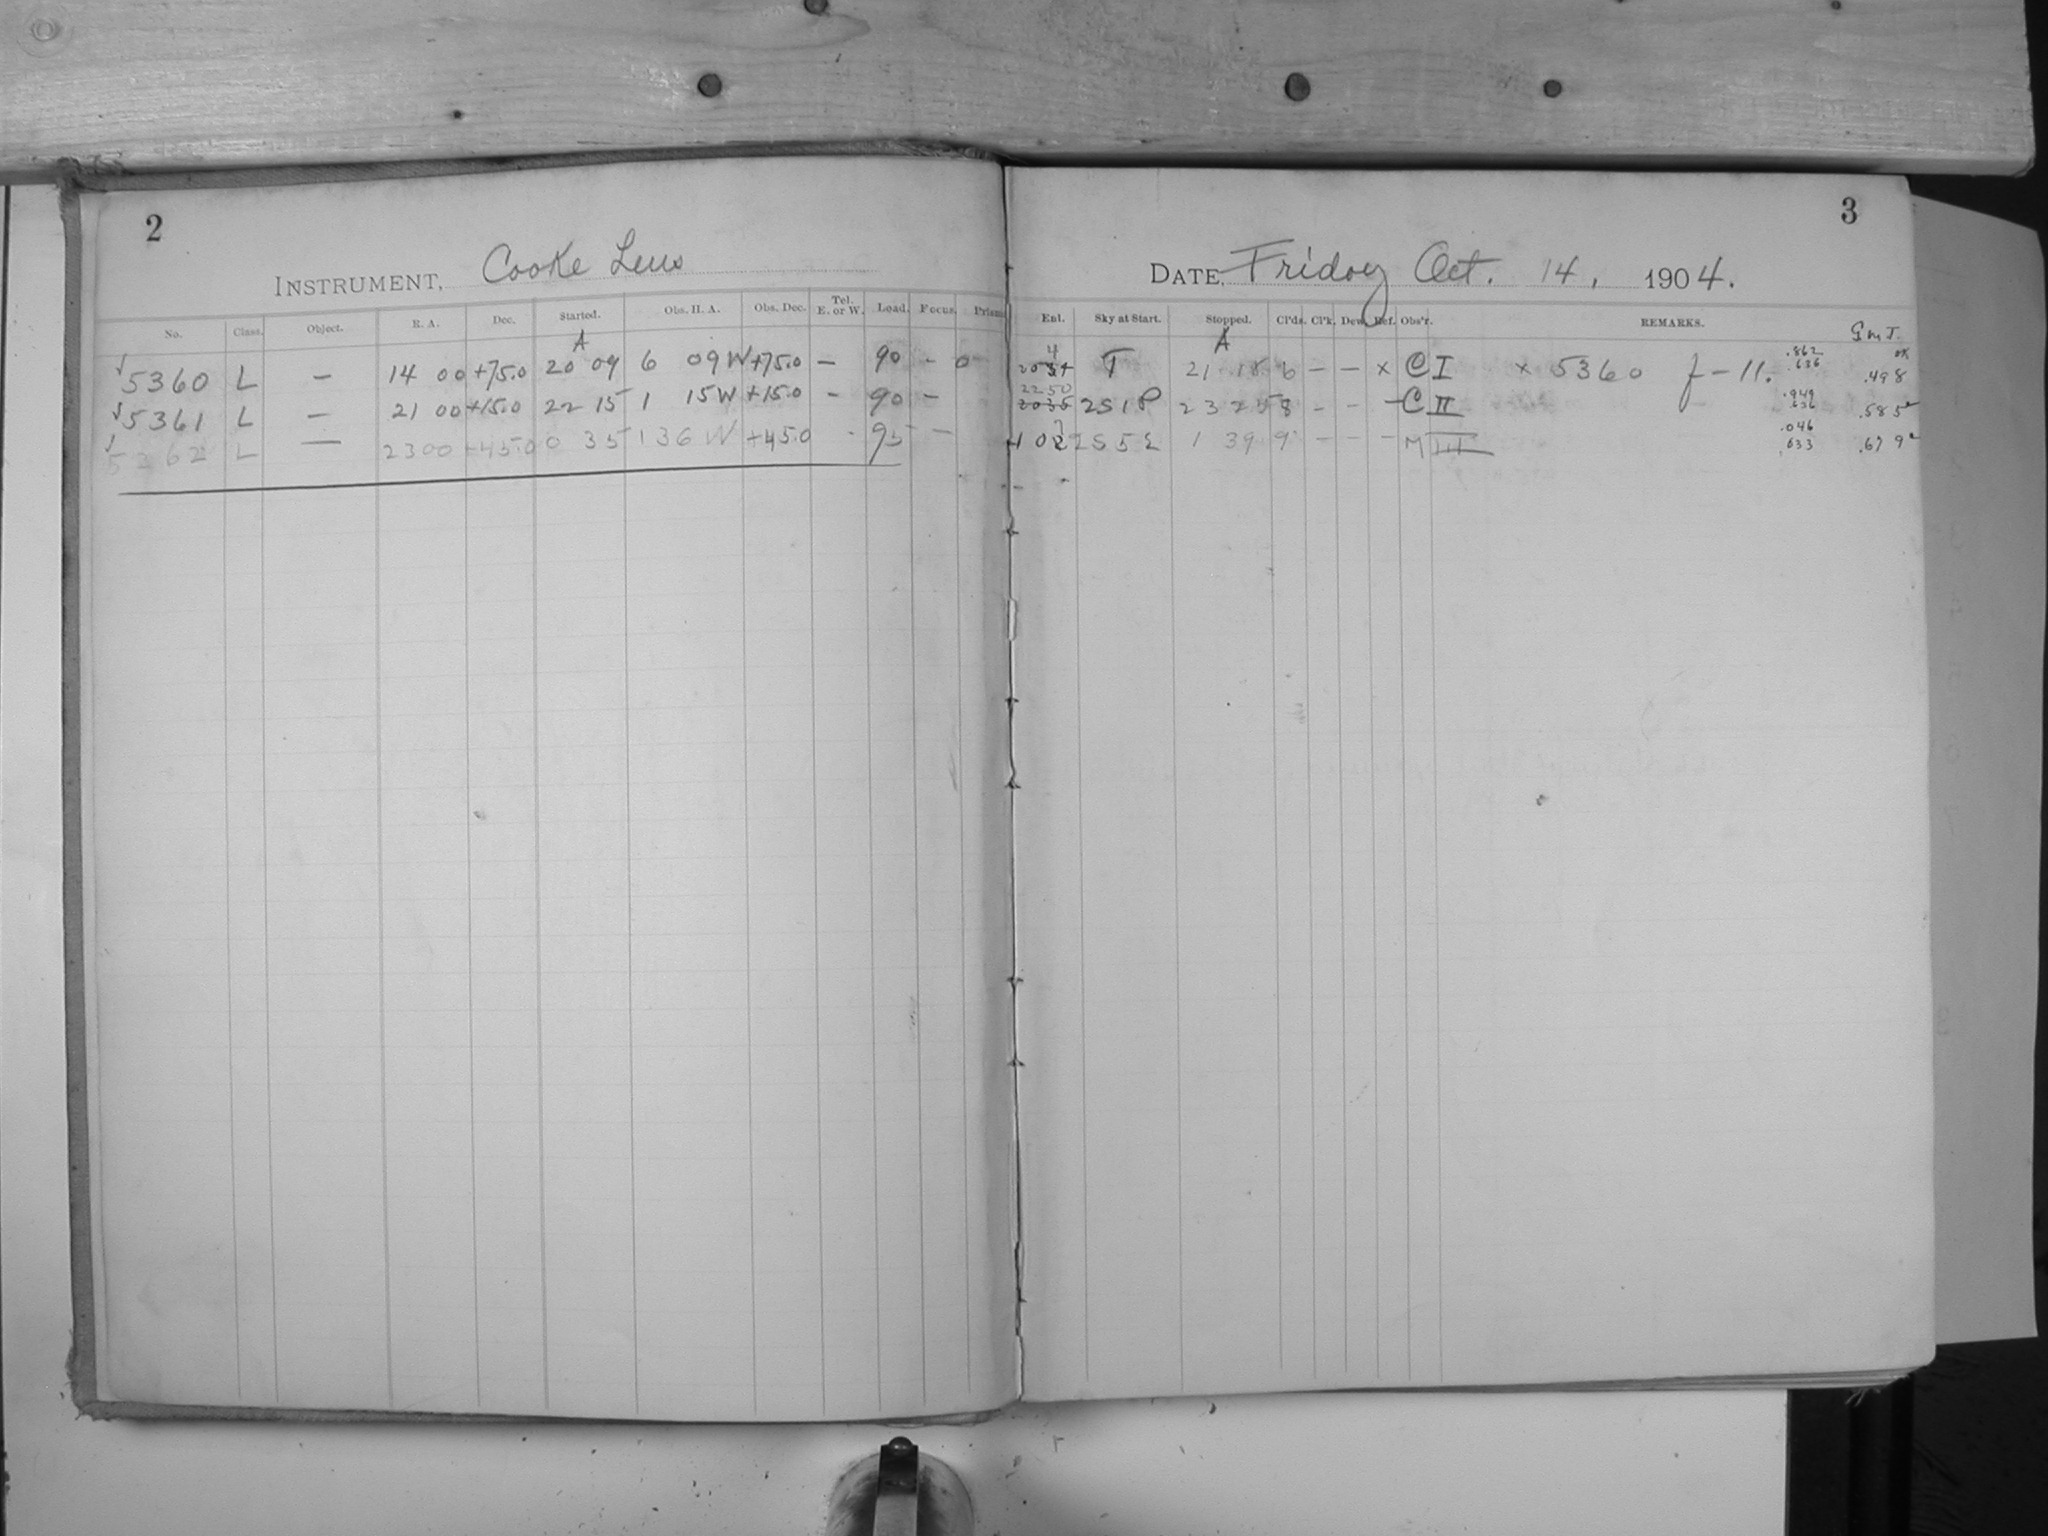 2
INSTRUMENT, Cooke Lens
No. Class. Object. R. A. Dec. Started. Obs. H. A. Obs. Dec. Tel. E. or W. Load. Focus. Prisms
A
√ 5360 L — 14 00 +75.0 20 09 6 09 W +75.0 — 90 - 0
√ 5361 L — 21 00 +15.0 22 15 1 15 W +15.0 - 90 -
√ 5362 L — 23 00 +45.0 0 35 1 36 W +45.0 - 95 —
3
DATE, Friday Oct. 14, 1904.
Ent. Sky at Start. Stopped. Cl'ds. Cl'k. Dew. Ref. Obs'r. REMARKS. G.M.T.
A
T 21 18 6 — — x C I x 5360 f - 11. .862 .636 .498 OK
2250 2S1P 23 25 8 - - - C II .949 .636 .585
2S5E 1 39 9 - - - M III .046 .633 .679